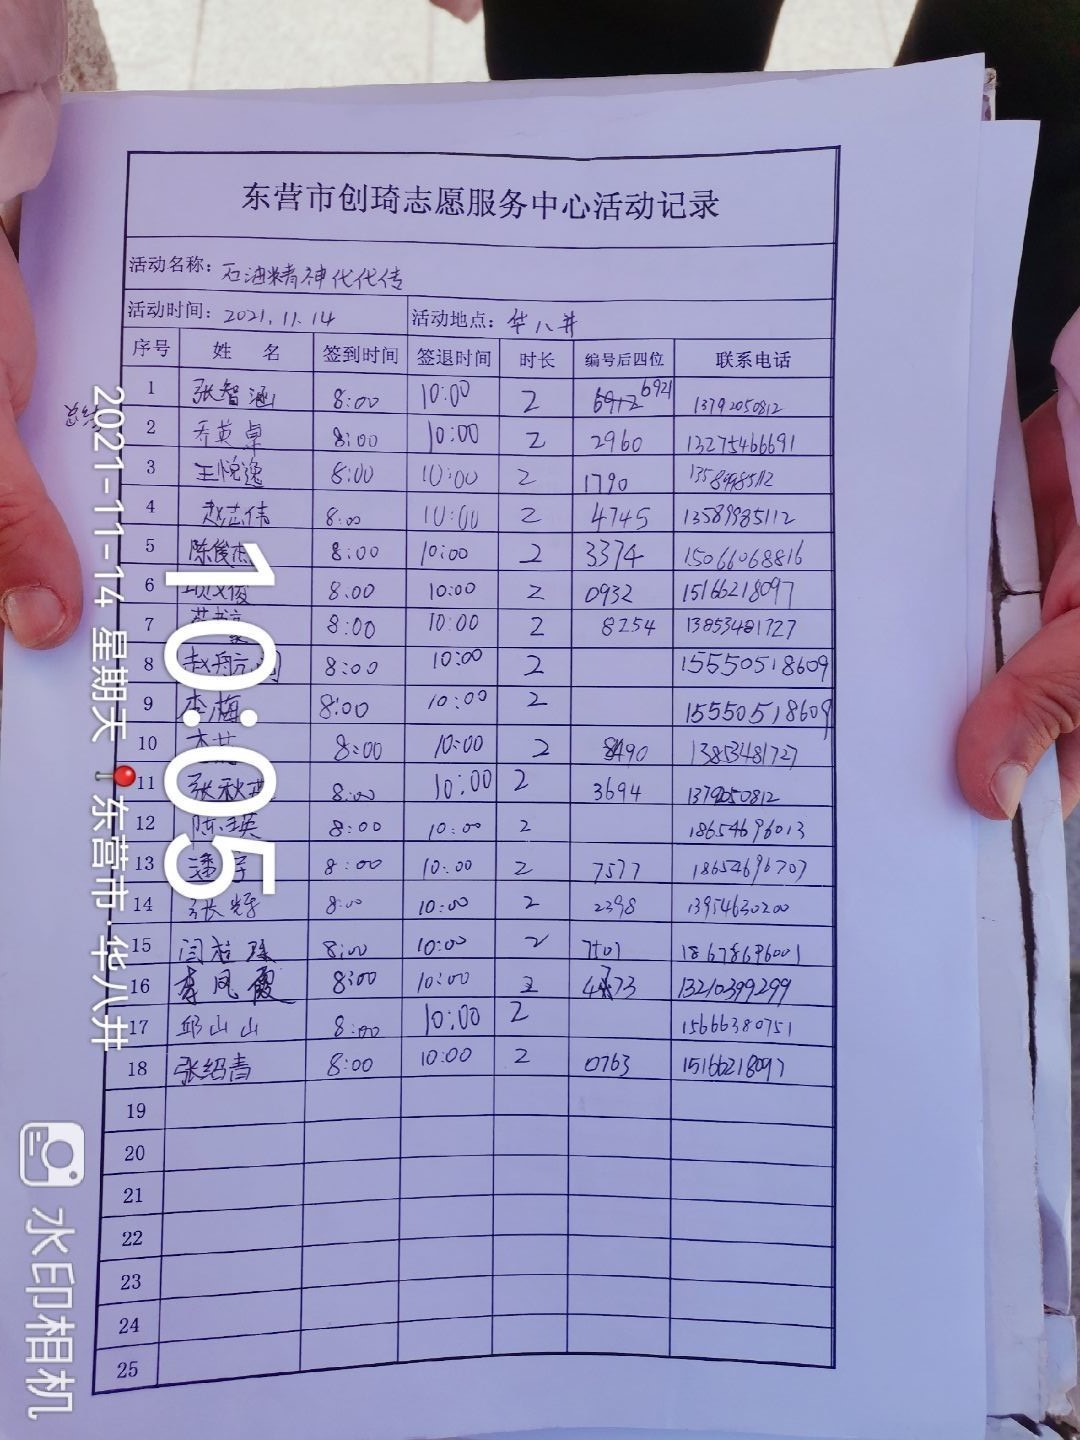 东营市创琦志愿服务中心活动记录
活动名称：石油精神代代传
活动时间：2021.11.14 活动地点：华八井
序号 姓 名 签到时间 签退时间 时长 编号后四位 联系电话
1 张智涵 8:00 10:00 2 6921 13792050812
2 乔英卓 8:00 10:00 2 2960 13275466691
3 王悦逸 8:00 10:00 2 1790 13589985112
4 赵志伟 8:00 10:00 2 4745 13589985112
5 陈俊杰 8:00 10:00 2 3374 15066068816
6 8:00 10:00 2 0932 15166218097
7 8:00 10:00 2 8254 13853481727
8 8:00 10:00 2 15550518609
9 李梅 8:00 10:00 2 15550518609
10 8:00 10:00 2 8490 13853481727
11 张秋燕 8:00 10:00 2 3694 1379050812
12 8:00 10:00 2 18654696013
13 8:00 10:00 2 7577 18654696707
14 张 8:00 10:00 2 2398 13954630200
15 闫 8:00 10:00 2 18678696001
16 李凤霞 8:00 10:00 2 4773 13210399299
17 邱山山 8:00 10:00 2 15666380751
18 张绍青 8:00 10:00 2 0763 15166218097
19
20
21
22
23
24
25
10:05
2021-11-14 星期天 东营市·华八井
水印相机